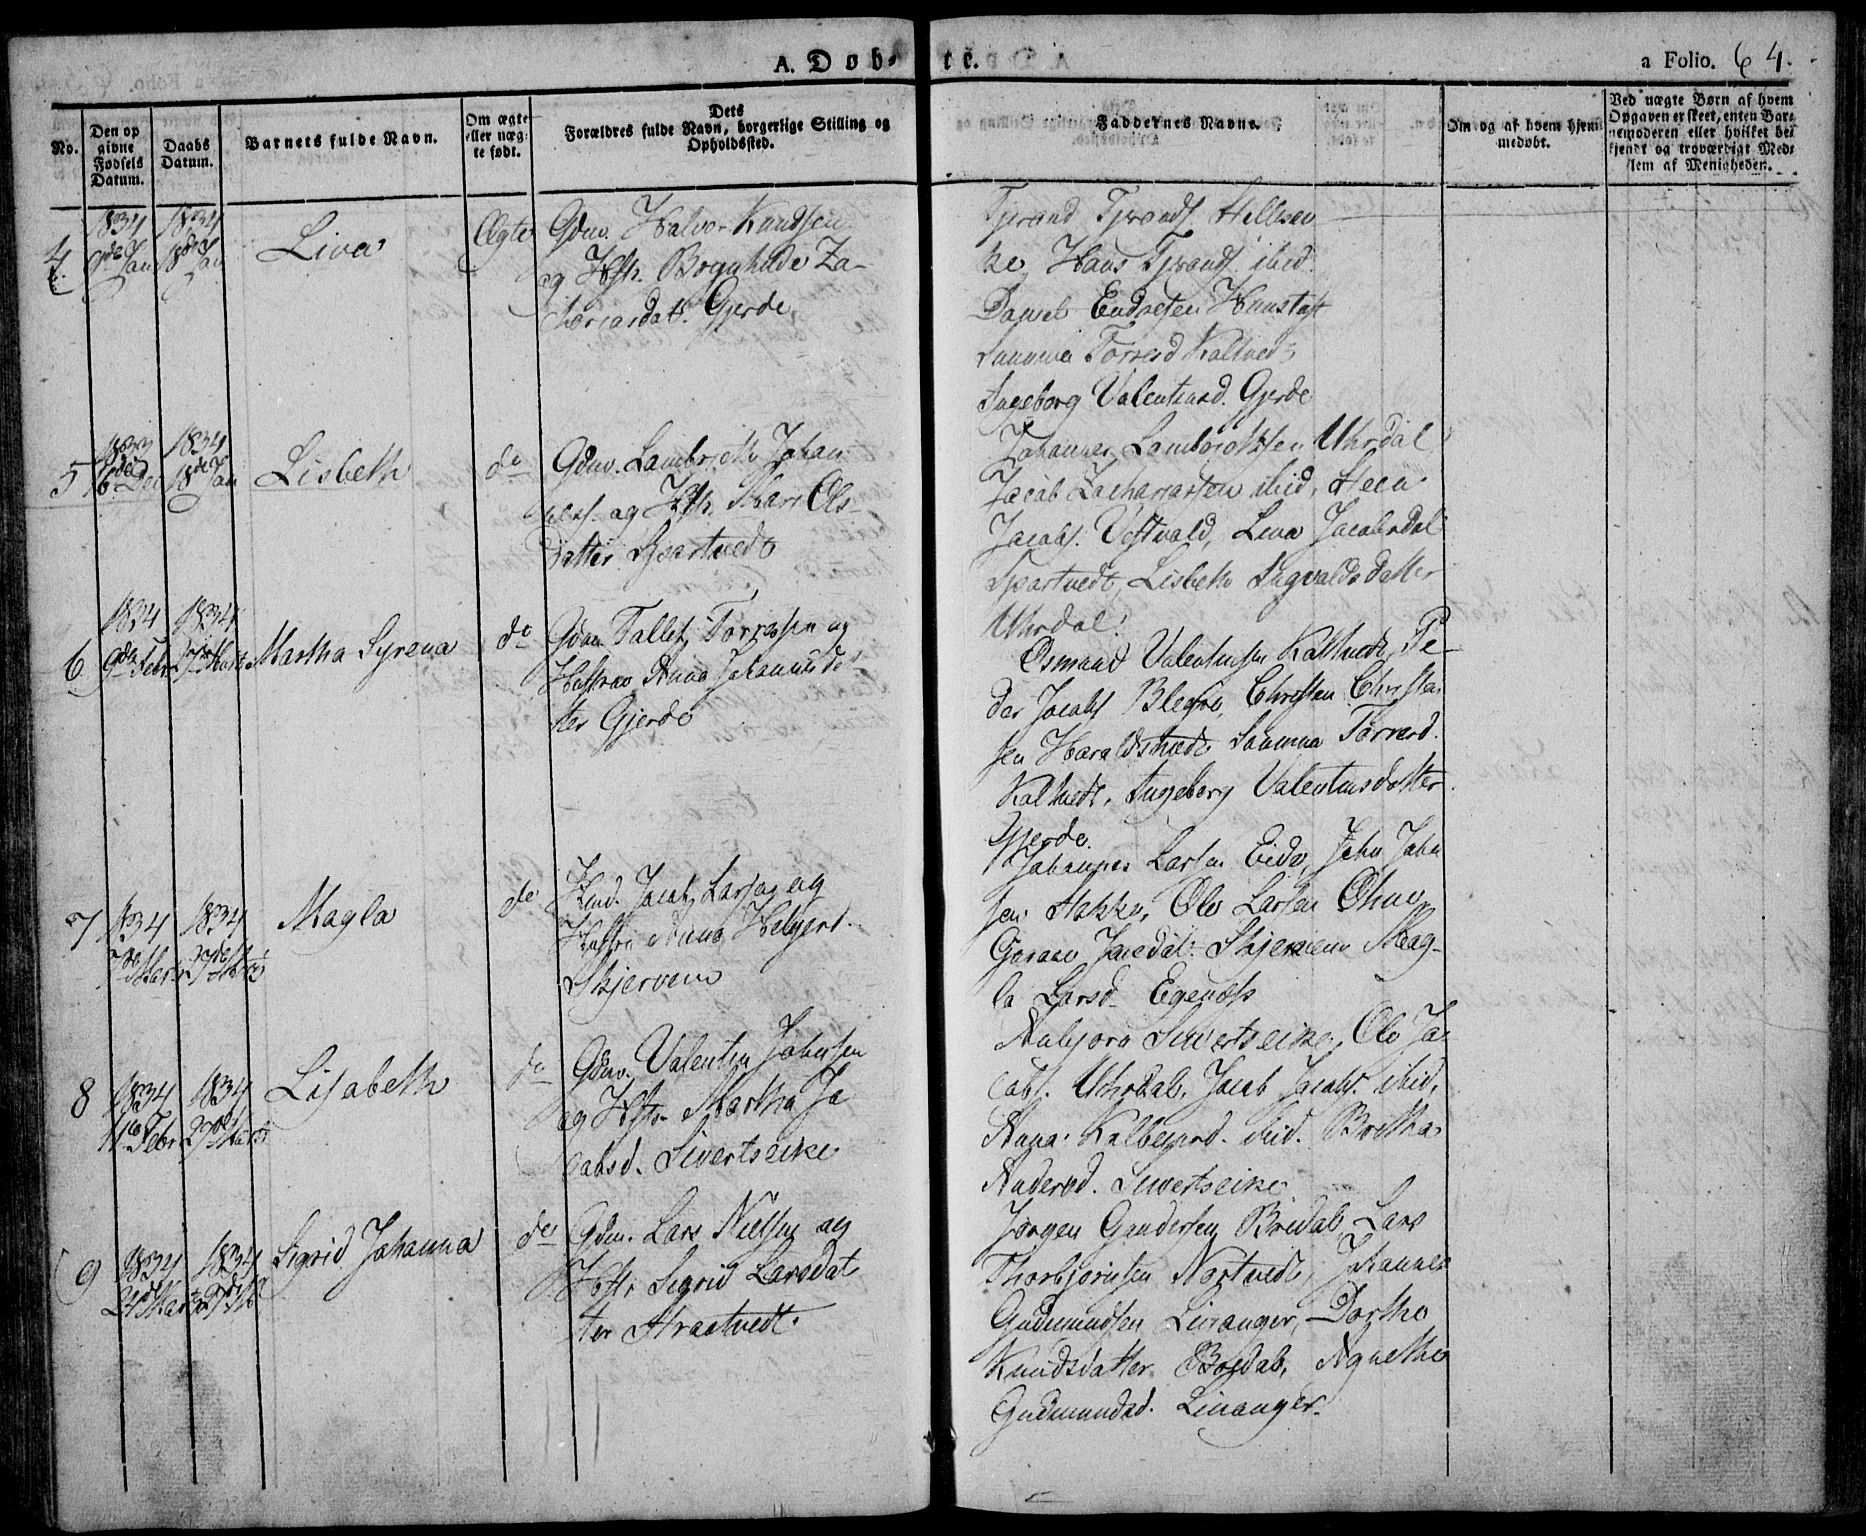 A. Døb-
te.
a Folio. 64.
No.
Den op
givne
Fødsels
Datum.
Daabs
Datum.
Barnets fulde Navn.
Om ægte
eller uæg-
te født.
Dets
Forældres fulde Navn, borgerlige Stilling og
Opholdssted.
Faddernes Navne.
Om og af hvem hjem-
medøbt.
Ved uægte Børn af hvem
Opgaven er skeet, enten Bar-
nemoderen eller hvilket be-
kjendt og troværdigt Med-
lem af Menigheden.
4
1834
9de Jan
1834
18de Jan
Liva
Ægte
Gdm. Halvor Knudsen
og Hstr. Bognhilde Za-
chariasdat. Gjerde
Tjerand Tjerands.
Hans Tjerands. ibid.
Daniel Endresen
Torresd Kaltvedt
Ingeborg Valentinsd. Gjerde
5
1833
16de Dec
1834
18de Jan
Lisbeth
do
Gdm. Lambrecth Johan-
nes. og Hstr. Mari Ols-
datter Spartvedt
Johannes Lambrechtsen Uhrdal
Jacob Zachariasen ibid,
Jacobs. Vestvald, Liva Jacobsdat
Spartvedt, Lisbeth Ingvaldsdatter
Uhrdal.
6
1834
9de Febr
1834
Martha Syrena
do
Gdm. Tallef Torresen og
Hustrue Anna Johannesdat-
ter Gjerde
Osmund Valentinsen Kaltvedt, Pe-
der Jacobs Blegie, Christen Christen-
sen Haraldstvedt Sunniva Torresd.
Kaltvedt, Ingeborg Valentinsdatter
Gjerde.
7
1834
7de Marts
1834
27de Marts
Magla
do
Jacob Larsen og
Hustru Anna Helgesd.
Skjervem
Johannes Larsen Eide, John John
sen Hakke, Ole Larsen
Skjervem Mag-
la Larsd. Egenæss
8
1834
Febr
1834
27de Marts
Lisabeth
do
Gdm. Valentin Johnsen
og Hstr. Martha Ja
cobsd. Sivertseike
Aabjora Sivertseike, Ole Ja
cobs. Uhrdal, Jacob Jacobs. ibid,
Anna Kolbegsd. ibid. Bertha
Andersd. Sivertseike
9
1834
24de Marts
1834
Sigrid Johanna
do
Gdm. Lars Nielsen og
Hstr Sigrid Larsdat-
ter Araatvedt.
Jørgen Gundersen Bredal, Lars
Thorbjørnsen Nortvedt, Johannes
Gudmundsen Livanger, Dorthe
Knudsdatter Bredal, Agnethe
Gudmundsd. Livanger.